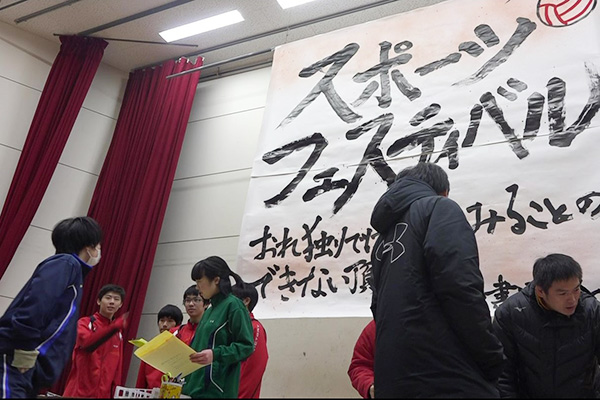 スポーツ
フェスティバル
おれ独りでは みることの
できない頂
書